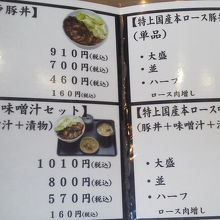 豚丼】
910円(税込)
700円(税込)
460円(税込)
160円(税込)
味噌汁セット】
汁＋漬物)
1010円(税込)
800円(税込)
570円(税込)
160円(税込)
【特上国産本ロース豚
(単品)
・大盛
・並
・ハーフ
ロース肉増し
【特上国産本ロース
(豚丼＋味噌汁＋
・大盛
・並
・ハーフ
ロース肉増し